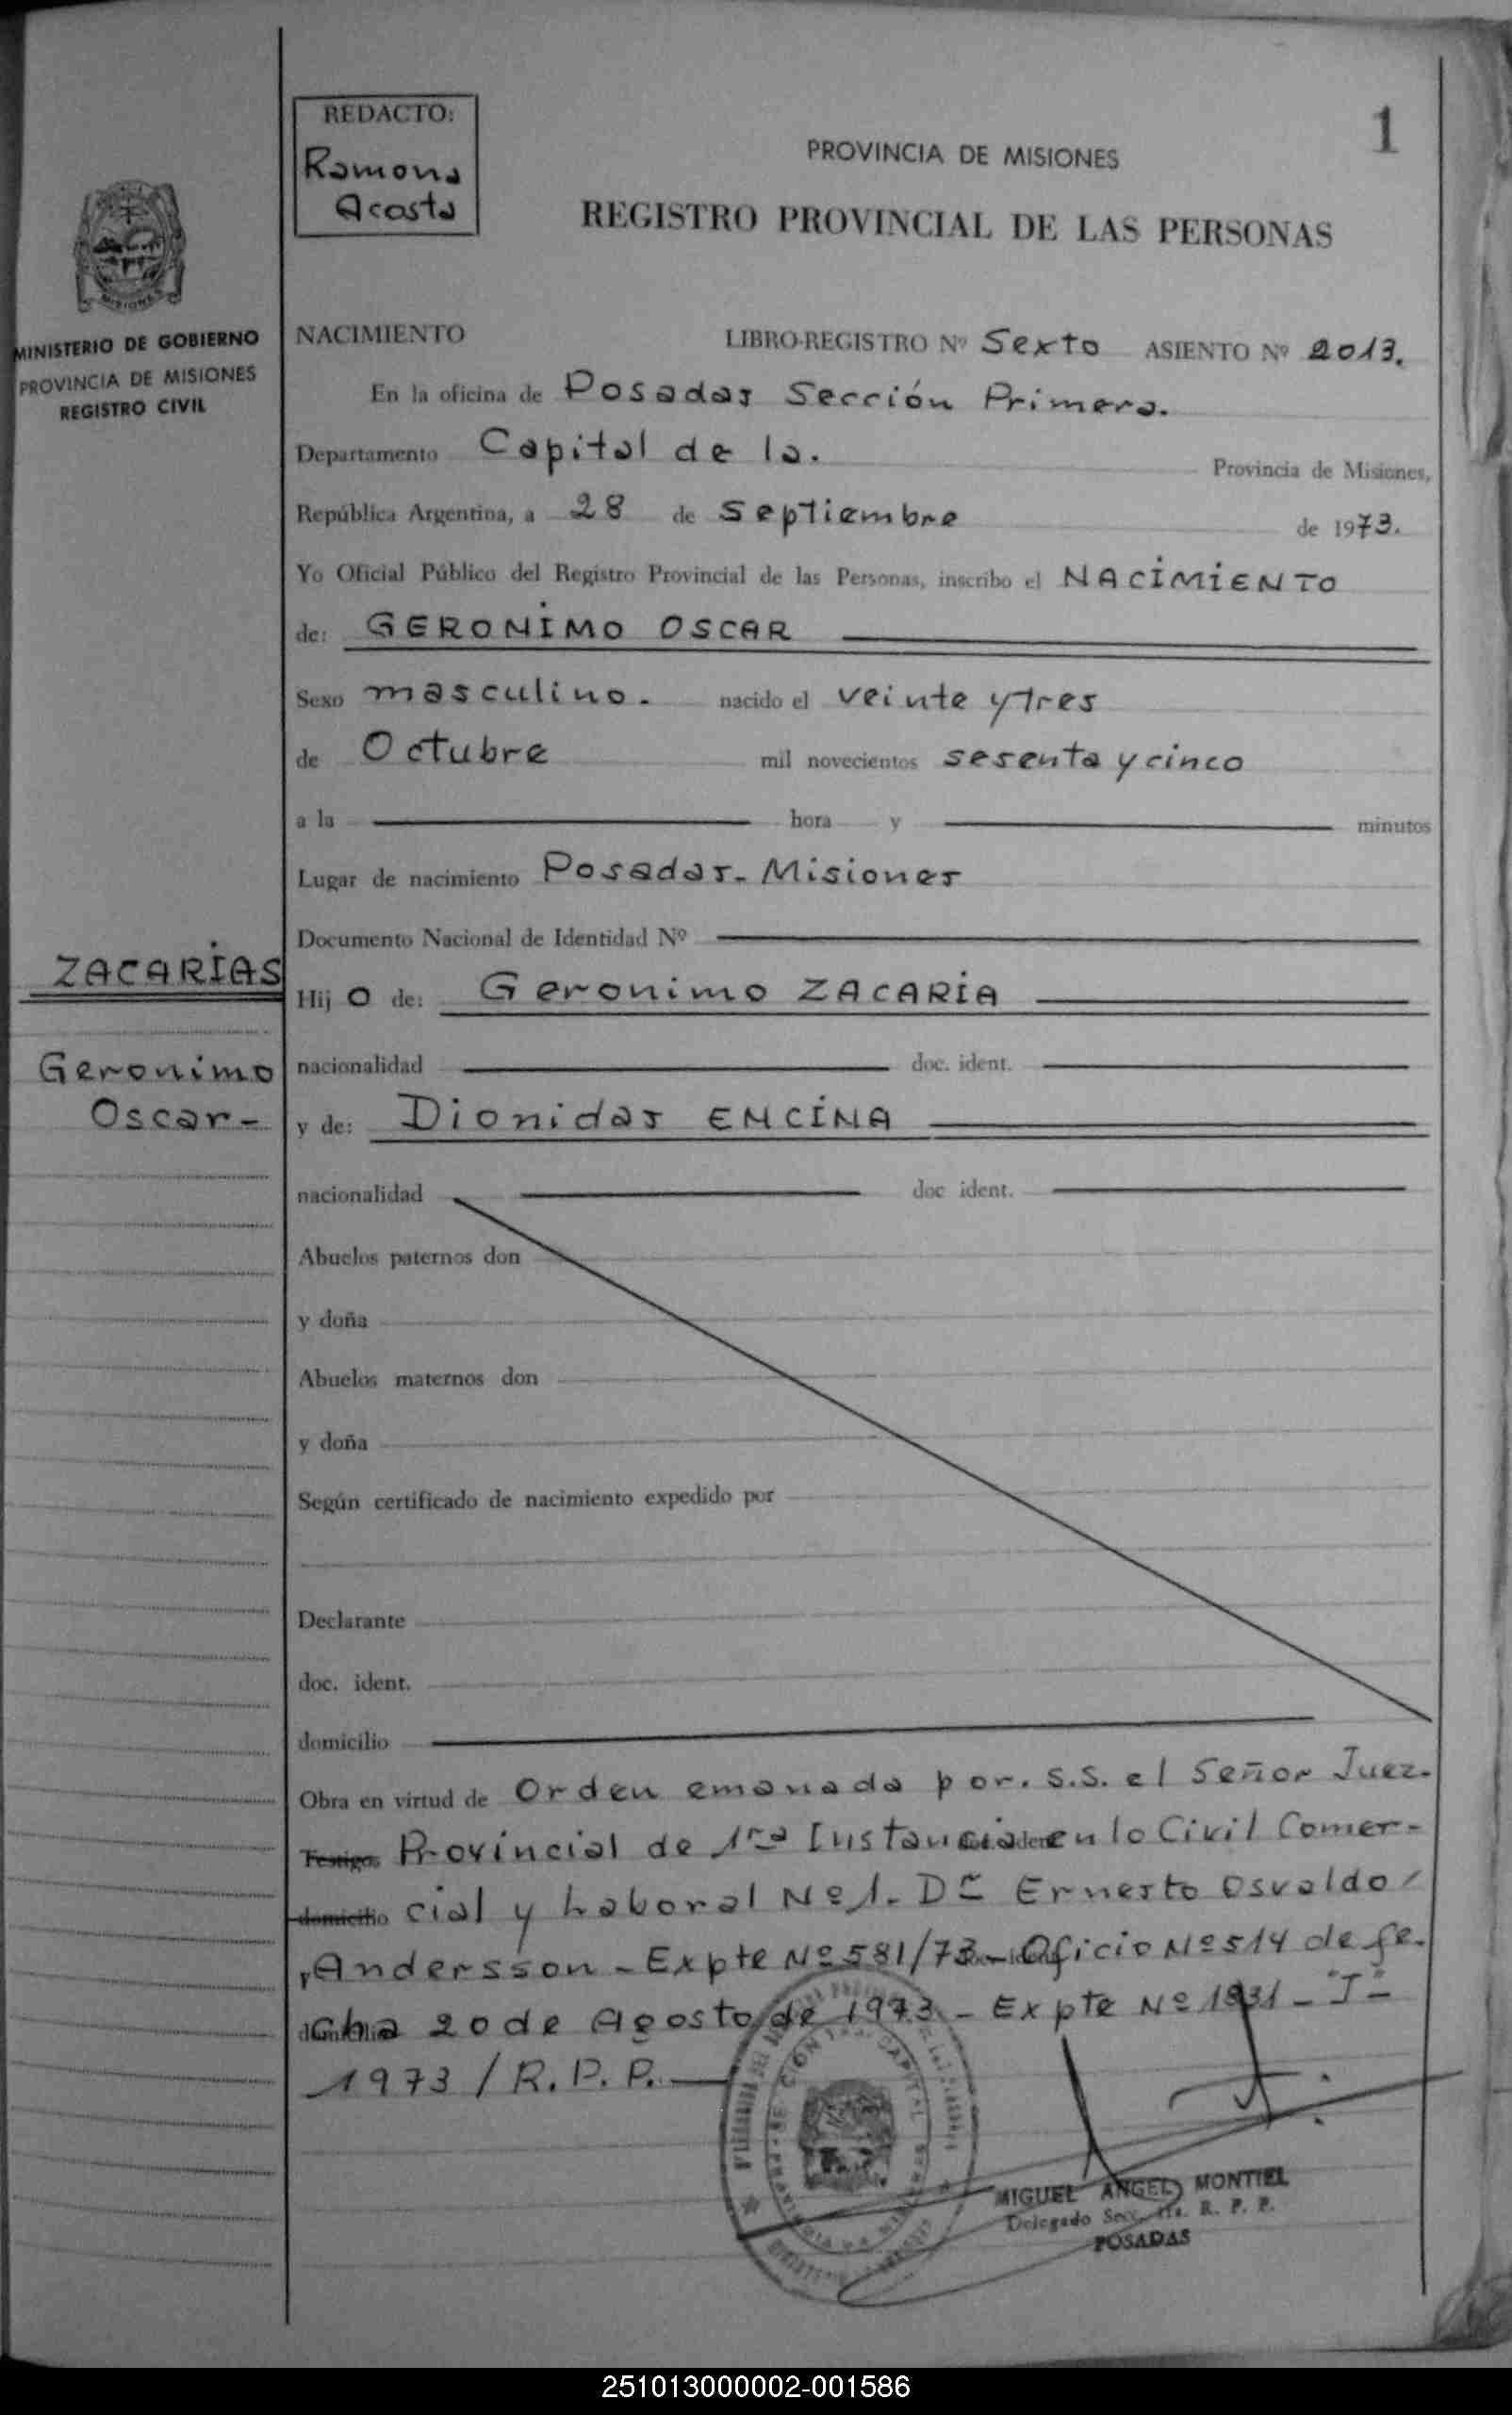 REDACTO:
Ramona
Acosta
1
PROVINCIA DE MISIONES
REGISTRO PROVINCIAL DE LAS PERSONAS
MISIONES
MINISTERIO DE GOBIERNO
PROVINCIA DE MISIONES
REGISTRO CIVIL
NACIMIENTO LIBRO-REGISTRO Nº Sexto ASIENTO Nº 2013.
En la oficina de Posadas Sección Primera.
Departamento Capital de la. Provincia de Misiones,
República Argentina, a 28 de Septiembre de 1973.
Yo Oficial Público del Registro Provincial de las Personas, inscribo el NACIMIENTO
de: GERONIMO OSCAR
Sexo masculino. nacido el veinte y tres
de Octubre mil novecientos sesenta y cinco
a la hora y minutos
Lugar de nacimiento Posadas - Misiones
Documento Nacional de Identidad Nº
ZACARÍAS
Geronimo
Oscar -
Hijo de: Geronimo ZACARÍA
nacionalidad doc. ident.
y de: Dionidas ENCINA
nacionalidad doc ident.
Abuelos paternos don
y doña
Abuelos maternos don
y doña
Según certificado de nacimiento expedido por
Declarante
doc. ident.
domicilio
Obra en virtud de Orden emanada por. S.S. el Señor Juez.
Testigos Provincial de 1ra Instancia en lo Civil Comer-
domicilio cial y Laboral Nº 1. Dr Ernesto Osvaldo
y Andersson - Expte Nº 581/73 - Oficio Nº 514 de fe-
cha 20 de Agosto de 1973 - Expte Nº 1831 - "J" -
1973 / R. P. P.
MIGUEL ANGEL MONTIEL
Delegado Secc. 1ra. R. P. P.
POSADAS
251013000002-001586